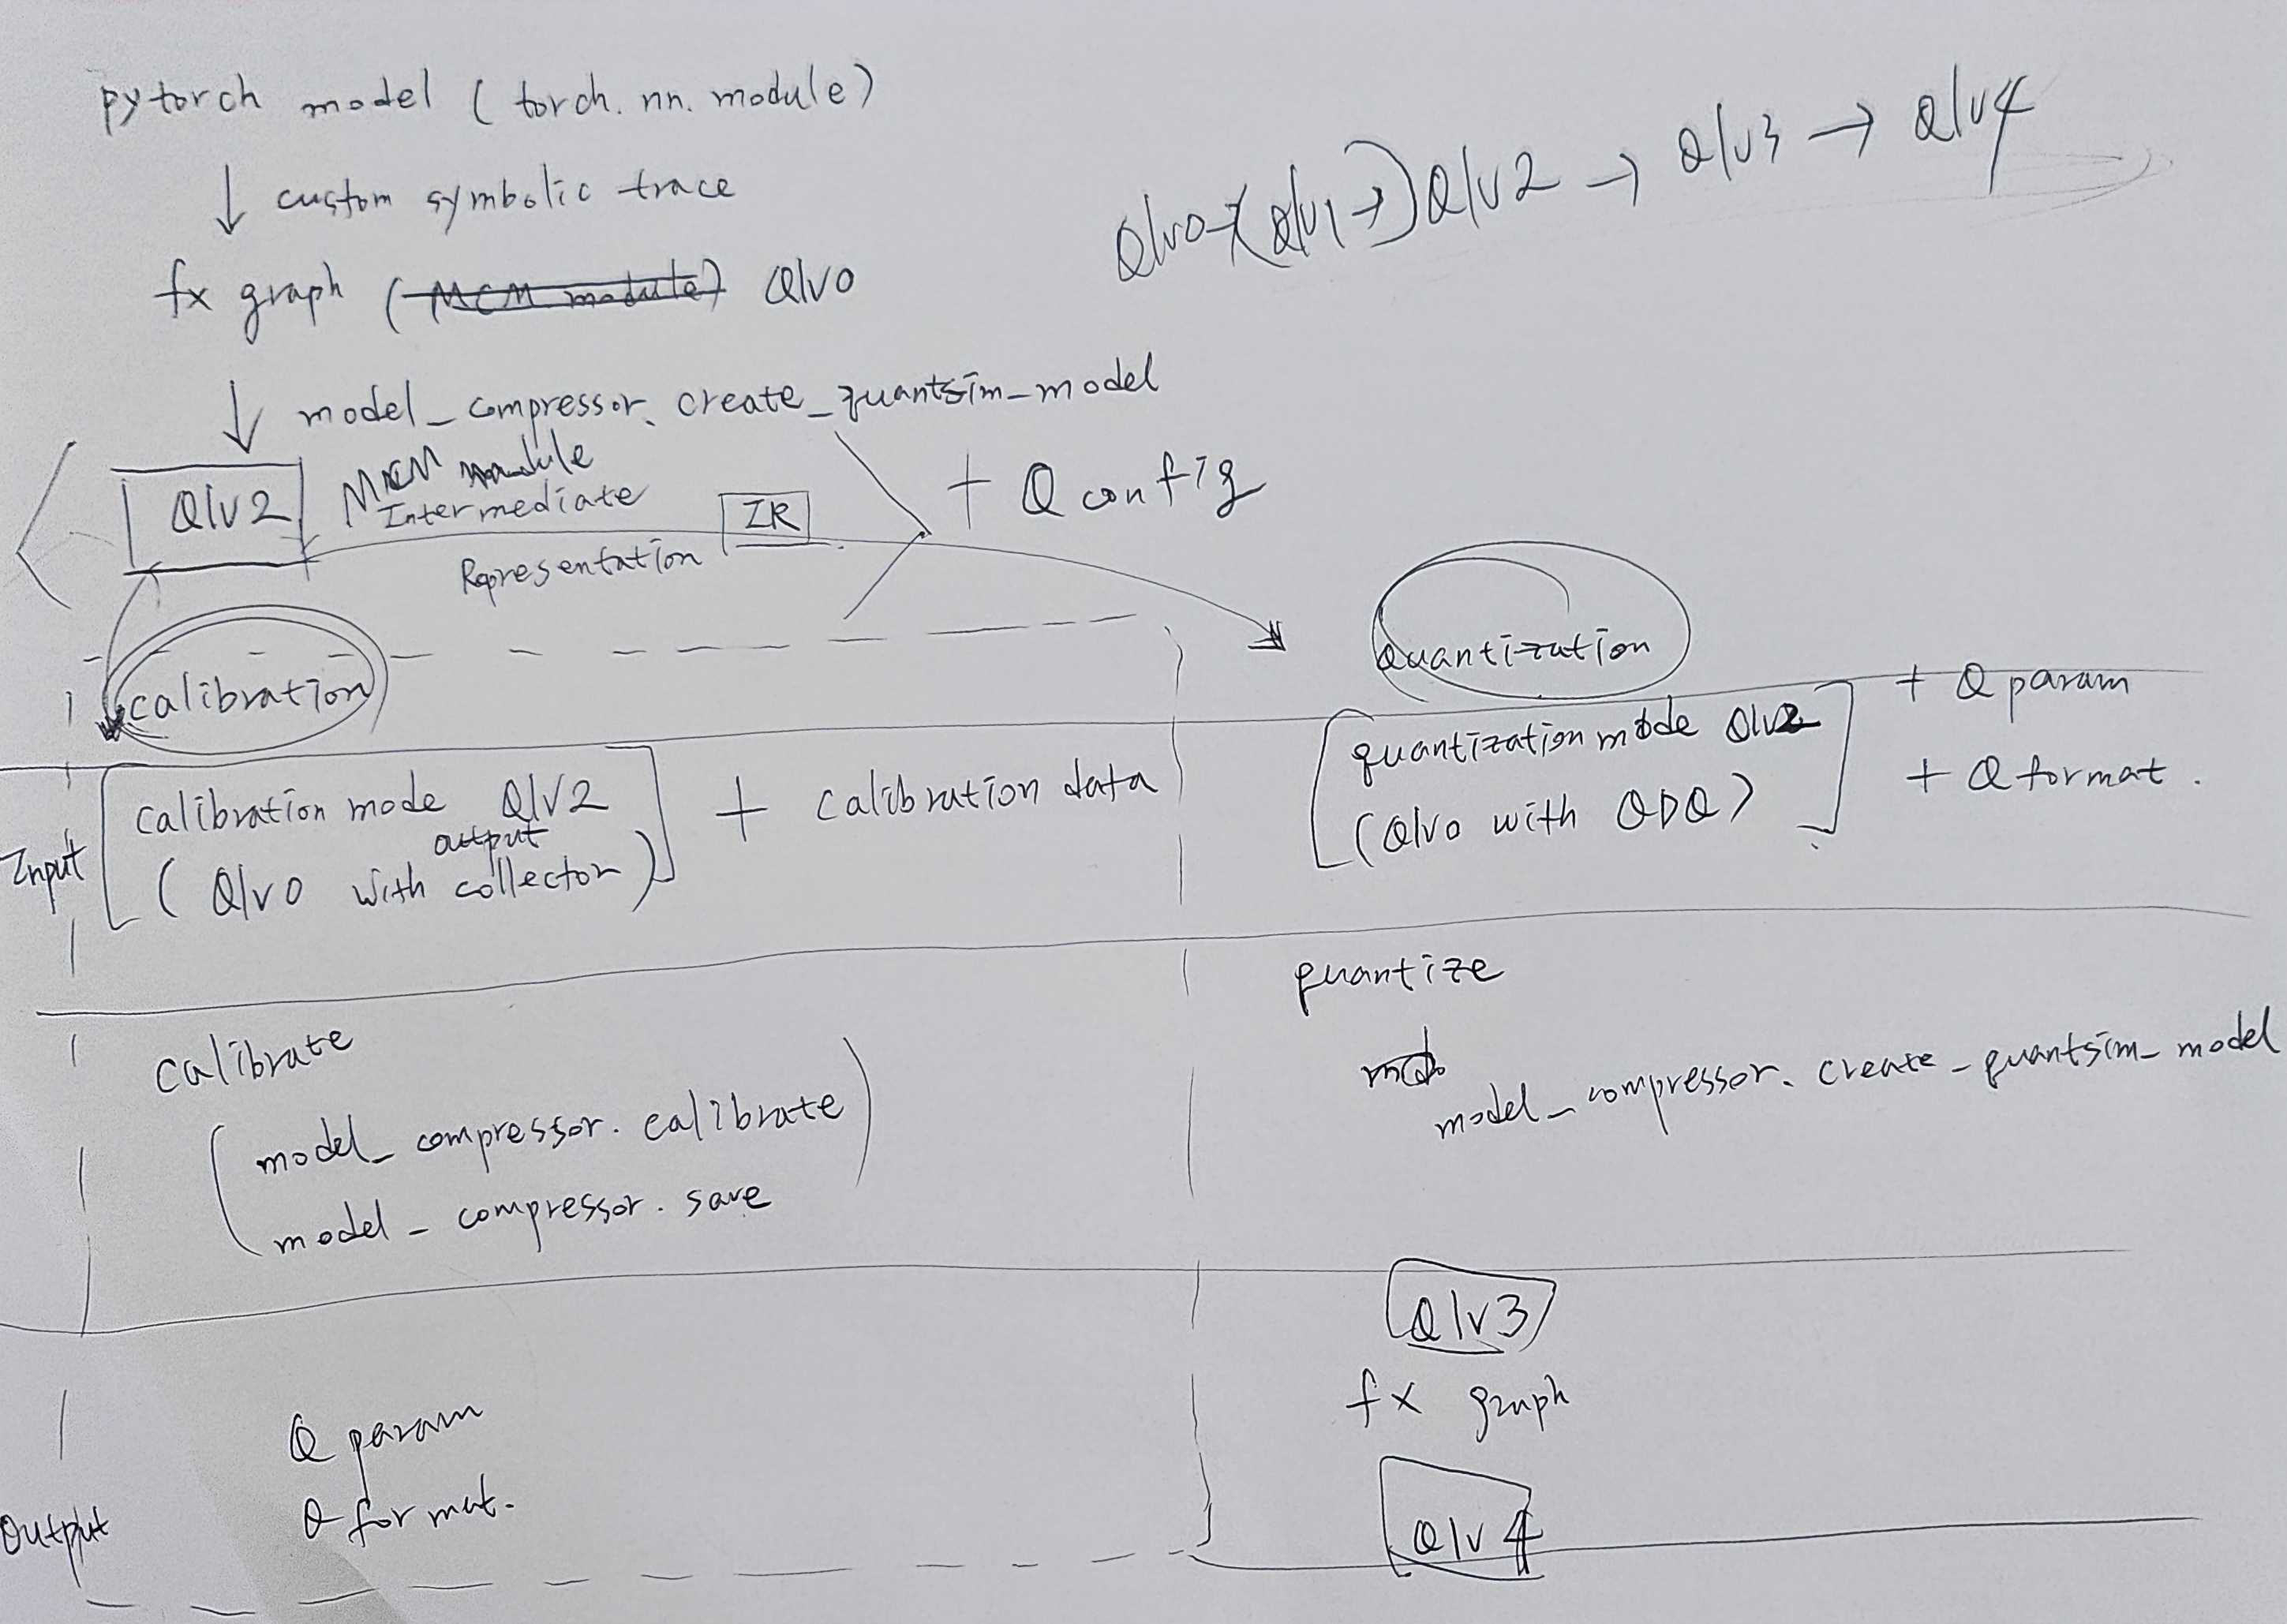 pytorch model (torch.nn.module)
↓ custom symbolic trace
fx graph (MCM module) Qlv0
Qlv0→(Qlv1→)Qlv2 → Qlv3 → Qlv4
↓ model_compressor.create_quantsim_model
Qlv2 MCM module
Intermediate
Representation IR
+ Qconfig
calibration
quantization
Input
calibration mode Qlv2
output
(Qlv0 with collector)
+ calibration data
quantization mode Qlv2
(Qlv0 with QDQ)
+ Qparam
+ Qformat.
calibrate
(model_compressor.calibrate
model_compressor.save)
quantize
model_compressor.create_quantsim_model
Output
Qparam
Qformat.
Qlv3
fx graph
Qlv4